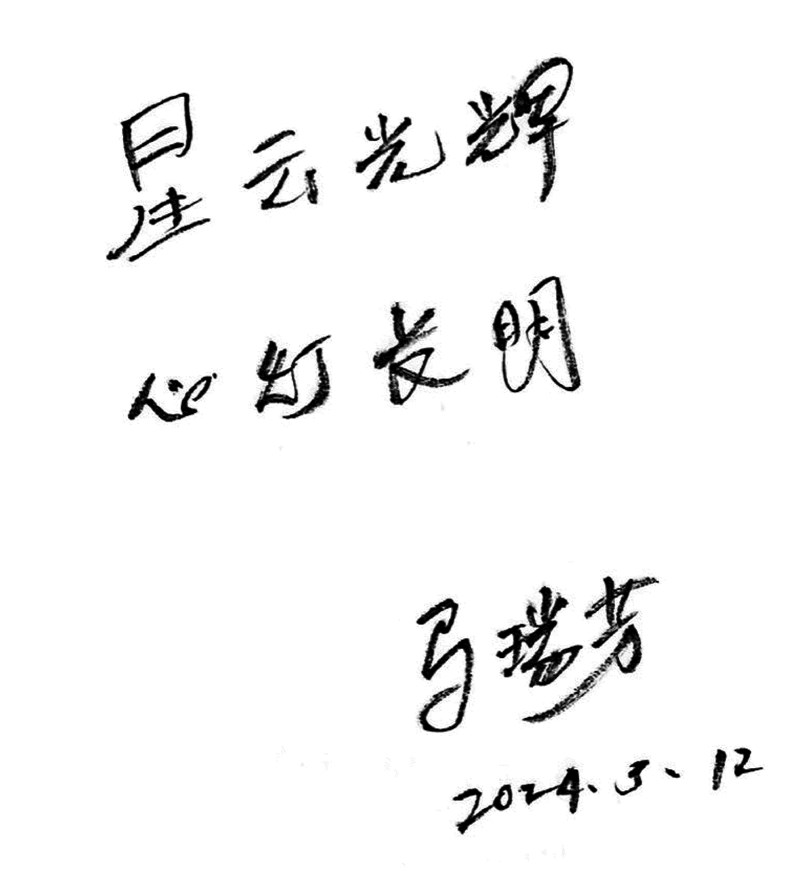 星云光辉
心灯长明
马瑞芳
2024.3.12